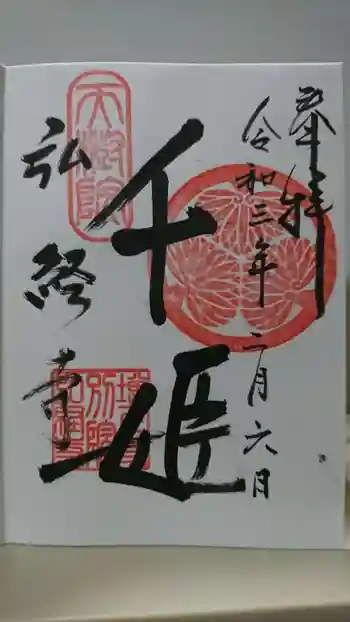 奉拝
令和三年二月六日
千姫
天樹院
弘経寺